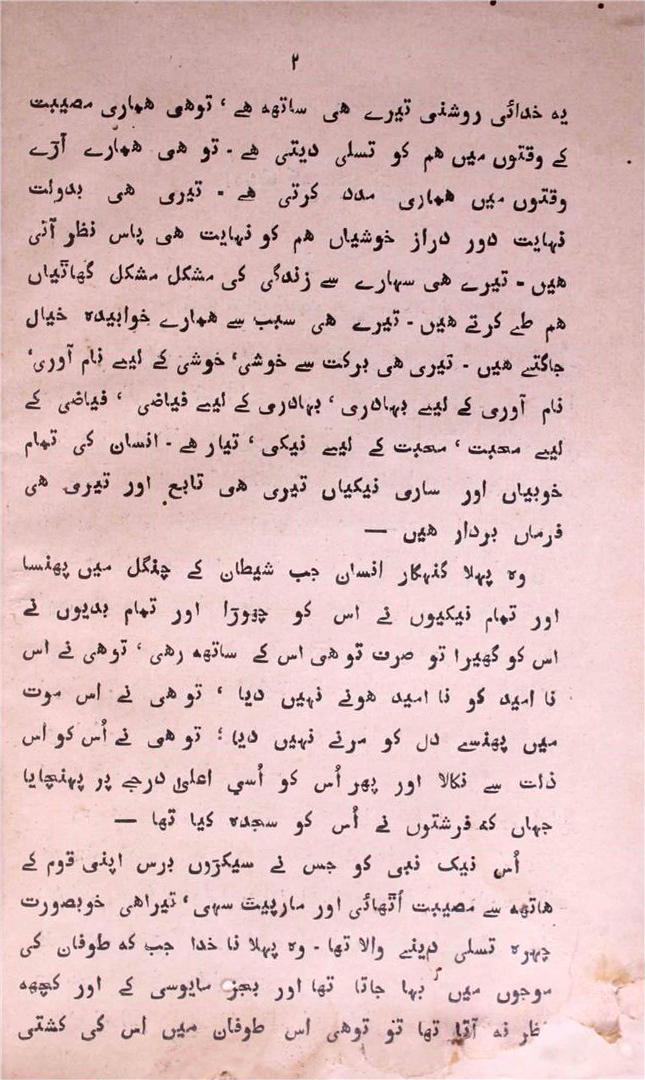 ۲
یہ خدائی روشنی تیرے ھی ساتھہ ھے ، توھی ھماری مصیبت
کے وقتوں میں ھم کو تسلی دیتی ھے - تو ھی ھمارے آڑے
وقتوں میں ھماری مدد کرتی ھے - تیری ھی بدولت
نہایت دور دراز خوشیاں ھم کو نہایت ھی پاس نظر آتی
ھیں - تیرے ھی سہارے سے زندگی کی مشکل مشکل گھاٹیاں
ھم طے کرتے ھیں - تیرے ھی سبب سے ھمارے خوابیدہ خیال
جاگتے ھیں - تیری ھی برکت سے خوشی، خوشی کے لیے نام آوری،
نام آوری کے لیے بہادری ، بہادری کے لیے فیاضی ، فیاضی کے
لیے محبت ، محبت کے لیے نیکی ، تیار ھے - انسان کی تمام
خوبیاں اور ساری نیکیاں تیری ھی تابع اور تیری ھی
فرماں بردار ھیں —
وہ پہلا گنہگار انسان جب شیطان کے چنگل میں پھنسا
اور تمام نیکیوں نے اس کو چھوڑا اور تمام بدیوں نے
اس کو گھیرا تو صرف تو ھی اس کے ساتھہ رھی ، توھی نے اس
نا امید کو نا امید ھونے نہیں دیا ، تو ھی نے اس موت
میں پھنسے دل کو مرنے نہیں دیا ؛ تو ھی نے اُس کو اس
ذلت سے نکالا اور پھر اُس کو اُسی اعلیٰ درجے پر پہنچایا
جہاں کہ فرشتوں نے اُس کو سجدہ کیا تھا —
اُس نیک نبی کو جس نے سیکڑوں برس اپنی قوم کے
ھاتھہ سے مصیبت اُٹھائی اور مارپیٹ سہی ، تیراھی خوبصورت
چہرہ تسلی دینے والا تھا - وہ پہلا نا خدا جب کہ طوفان کی
موجوں میں بہا جاتا تھا اور بجز مایوسی کے اور کچھہ
نظر نہ آتا تھا تو توھی اس طوفان میں اس کی کشتی